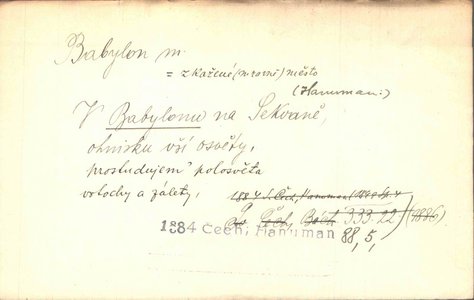 Babylon m.
= zkažené (mravní) město
(Hanuman:)
V Babylonu na Sekvaně,
ohnisku vší osvěty,
prostudujem polosvěta
vrtochy a zálety,
1884 S. Čech, Hanuman
Čech, 333.22) (1886)
1884 Čech, Hanuman 88, 5,